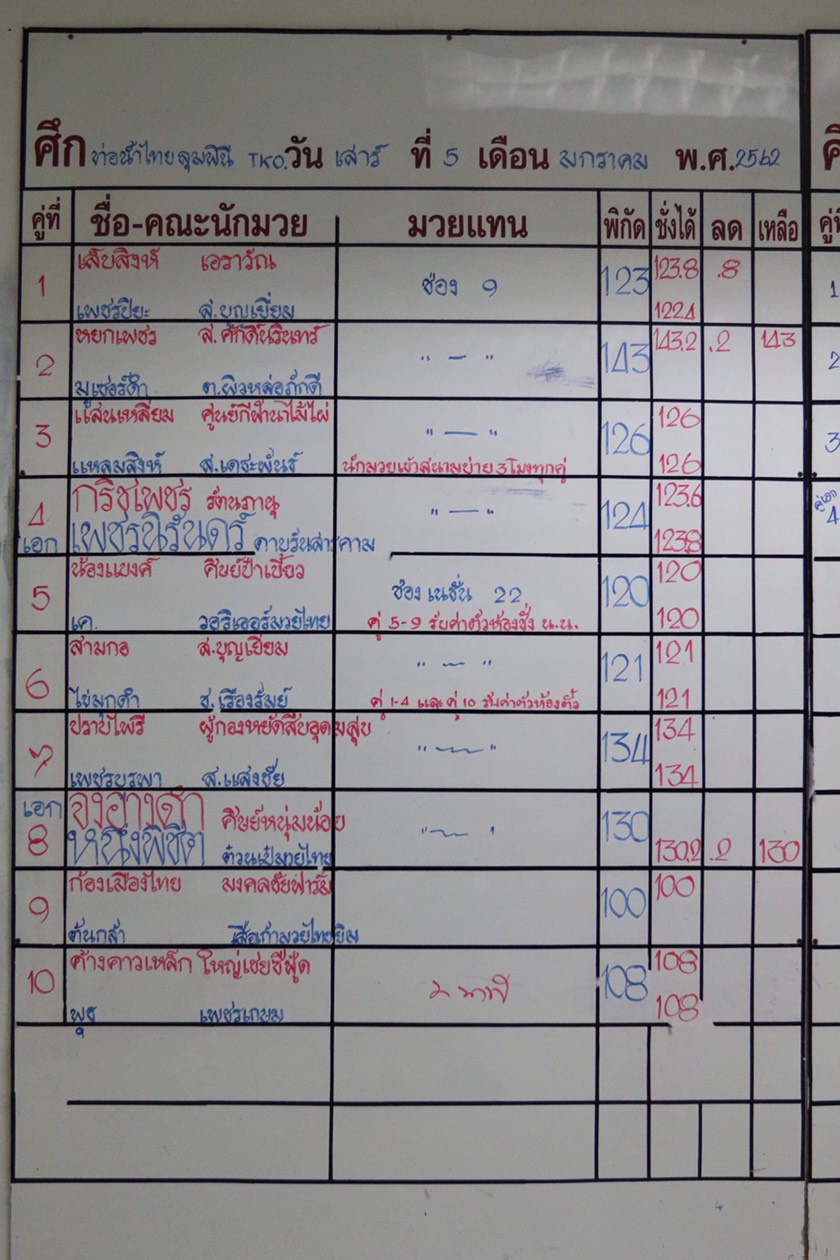 ศึก ท่อน้ำไทยลุมพินี TKO. วัน เสาร์ ที่ 5 เดือน มกราคม พ.ศ. 2562
คู่ที่ ชื่อ-คณะนักมวย มวยแทน พิกัด ชั่งได้ ลด เหลือ
1 เสือสิงห์ เอราวัณ ช่อง 9 123 123.8 .8
เพชรปิยะ ส.บุญเยี่ยม 122.4
2 หยกเพชร ส.ศักดิ์นรินทร์ " — " 143 143.2 .2 143
มูเซอร์ดำ ต.ผิวหล่อภักดี
3 แสนเหลี่ยม ศูนย์กีฬานาไม้ไผ่ " — " 126 126
แหลมสิงห์ ส.เดชะพันธ์ นักมวยเข้าสนามบ่าย 3 โมงทุกคู่ 126
4 กริชเพชร รัตนภานุ " — " 124 123.6
เอก เพชรนิรันดร์ ดาบรันสารคาม 123.8
5 น้องแบงค์ ศิษย์ป๋าเบี้ยว ช่อง เนชั่น 22 120 120
เค. วอริเออร์มวยไทย คู่ 5-9 รับค่าตัวห้องชั่ง น.น. 120
6 สามกอ ส.บุญเยี่ยม " — " 121 121
ไข่มุกดำ ช.เรืองรัมย์ คู่ 1-4 และ คู่ 10 รับค่าตัวห้องตั๋ว 121
7 ปราบไพรี ผู้กองหยัดสืบอุดมสุข " — " 134 134
เพชรบูรพา ส.แสงชัย 134
เอก องอาจศึก ศิษย์หนุ่มน้อย " — " 130
8 หนึ่งพิชิต ต้วนเป๋มวยไทย 130.2 .2 130
9 ก้องเมืองไทย มงคลชัยฟาร์ม 100 100
ต้นกล้า เสือเก๋ามวยไทยยิม
10 ค้างคาวเหล็ก ใหญ่เชยซีฟู้ด 2 นาที 108 108
พุธ เพชรเกษม 108